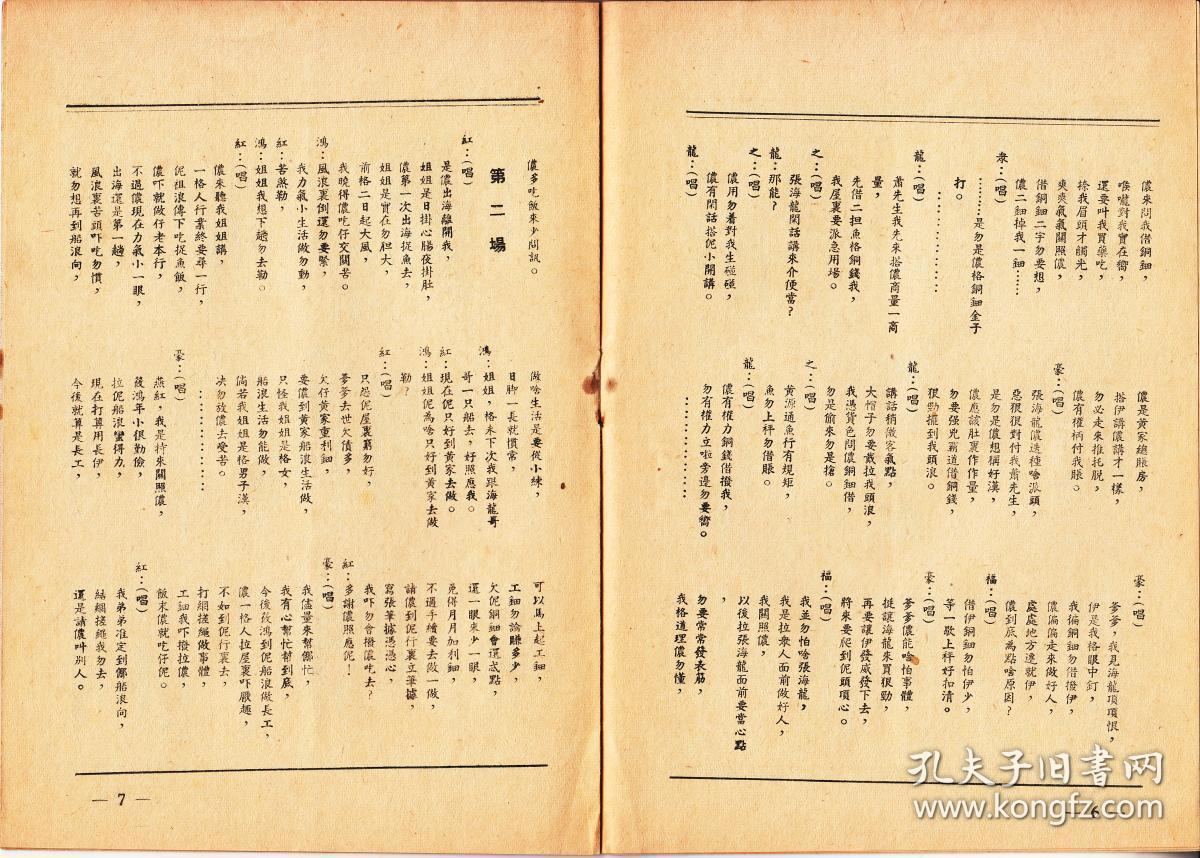 儂來問我借銅鈿，
喉嚨對我實在嚮，
還要叫我買藥吃，
捺我眉頭才觸光，
爽爽氣氣關照儂，
借銅鈿二字勿要想，
儂二鈿掉我一鈿……
衆：（唱）
………是勿是儂格銅鈿金子
打。
…………
龍：（唱）
蕭先生我先來搭儂商量一商
量，
先借二担魚格銅錢我，
我屋裏要派急用場。
之：（唱）
張海龍閑話講來介便當？
龍：那能？
之：（唱）
儂用勿着對我生碰碰，
儂有閑話搭伲小開講。
龍：（唱）
儂是黃家總賬房，
搭伊講儂講才一樣，
勿必走來推托脫，
儂有權柄付我賬。
豪：（唱）
張海龍儂迭種啥派頭，
惡狠狠對付我蕭先生，
是勿是儂想稱好漢，
儂應該肚裏作作量，
勿要强兇霸道借銅錢，
狠勁擺到我頭浪。
龍：（唱）
講話稍微客氣點，
大帽子勿要戴拉我頭浪，
我憑貨色問儂銅鈿借，
勿是偷來勿是搶。
之：（唱）
黃源通魚行有規矩，
魚勿上秤勿借賬。
龍：（唱）
儂有權力銅錢借撥我，
勿有權力立啦旁邊勿要嚮。
…………
豪：（唱）
爹爹，我見海龍項項恨，
伊是我格眼中釘，
我偏銅鈿勿借撥伊，
儂偏偏走來做好人，
處處地方遷就伊，
儂到底爲點啥原因？
福：（唱）
借伊銅鈿勿怕伊少，
等一歇上秤好扣清。
豪：（唱）
爹爹儂能啥怕事體，
挺讓海龍來買狠勁，
再要讓伊發威發下去，
將來要爬到伲頭頂心。
福：（唱）
我並勿怕啥張海龍，
我是拉衆人面前做好人，
我關照儂，
以後拉張海龍面前要當心點
，
勿要常常發衣筋，
我格道理儂勿懂，
— 6 —
儂多吃飯來少問訊。
第二場
紅：（唱）
是儂出海離開我，
姐姐是日掛心腸夜掛肚，
儂第一次出海捉魚去，
姐姐是實在勿胆大，
前格二日起大風，
我曉得儂吃仔交關苦。
鴻：風浪裏倒還勿要緊，
我力氣小生活做勿動，
紅：苦煞勒，
鴻：姐姐我想下趟勿去勒。
紅：（唱）
儂來聽我姐姐講，
一格人行業終要尋一行，
伲祖浪傳下吃捉魚飯，
儂吓就做仔老本行，
不過儂現在力氣小一眼，
出海還是第一趟，
風浪裏苦頭吓吃勿慣，
就勿想再到船浪向，
做啥生活是要從小練，
日脚一長就慣常，
鴻：姐姐，格末下次我跟海龍哥
哥一只船去，好照應我。
紅：現在伲只好到黃家去做。
鴻：姐姐伲為啥只好到黃家去做
勒？
紅：（唱）
只怨伲屋裏第勿好，
爹爹去世欠債多，
欠仔黃家重利鈿，
要儂到黃家船浪生活做，
只怪我姐姐是格女，
船浪生活勿能做，
倘若我姐姐是格男子漢，
决勿放儂去受苦。
…………
豪：（唱）
燕紅，我是特來關照儂，
筱鴻年小很勤儉，
拉伲船浪蠻得力，
現在打算用長伊，
今後就算是長工，
可以馬上起工鈿，
工鈿勿論賺多少，
欠伲銅鈿會還忒點，
還一眼來少一眼，
免得月月加利鈿，
不過手續要去做一做，
請儂到伲行裏立筆據，
寫張筆據憑憑心，
我吓勿會撥儂吃去？
紅：多謝儂照應伲！
豪：（唱）
我儘量來幫倻忙，
我有心幫忙幫到底，
今後筱鴻到伲船浪做長工，
儂一格人拉屋裏吓厭趣，
不如到伲行裏去，
打綱搓繩做事體，
工鈿我吓撥拉儂，
飯末儂就吃仔伲。
紅：（唱）
我弟弟准定到倻船浪向，
結綱搓繩我勿去，
還是請儂叫別人。
— 7 —
孔夫子旧書网
www.kongfz.com